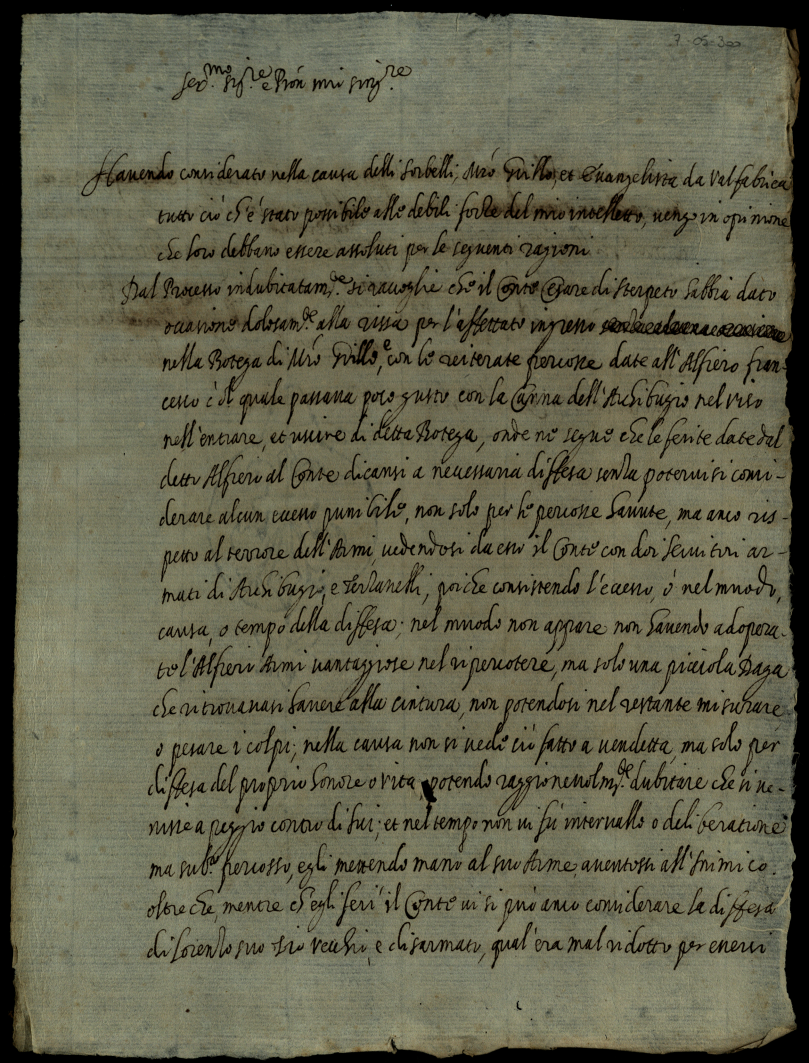 Ser.mo Sig.re e Pron mio sing.re
Havendo considerato nella causa delli Sorbelli, Mro Grillo, et Evangelista da Valfabrica
tutto ciò ch'è stato possibile alle debili forze del mio intelletto, vengo in opinione
che loro debbano essere assoluti per le seguenti ragioni
Dal Processo indubitatam.te si raccoglie che il Conte Cesare di Sterpeto habbia dato
occasione dolosam.te alla rissa per l'affettato ingresso
nella Botega di Mro Grillo, e con le reiterate percosse date all'Alfiero Fran-
cesco c'ol quale passava poco gusto con la Canna dell'Archibugio nel viso
nell'entrare, et uscire di detta Botega, onde ne segue che le ferite date dal
detto Alfiero al Conte dicansi a necessaria diffesa senza potervisi consi-
derare alcun eccesso punibile, non solo per le percosse havute, ma anco ris-
petto al terrore dell'Armi, vedendosi da esso il Conte con doi Servitori ar-
mati di Archibugi, e Terzanelli, poiche consistendo l'eccesso, ò nel muodo,
causa, o tempo della diffesa; nel muodo non appare non havendo adopera-
te l'Alfieri Armi vantaggiose nel ripercotere, ma solo una picciola Daga
che ritrovavasi havere alla cintura, non potendosi nel restante misurare,
o pesare i colpi; nella causa non si vede ciò fatto a vendetta ma solo per
diffesa del proprio honore o vita, potendo raggionevolm.te dubitare che si ve-
nisse a peggio contro di lui; et nel tempo non vi fù intervallo o deliberatione
ma sub.o percosso, egli mettendo mano al suo Arme, aventossi all'Inimico.
oltre che, mentre ch'egli ferì il Conte vi si può anco considerare la diffesa
di Lorenzo suo Zio vecchio, e disarmato, qual'era mal ridotto per essersi